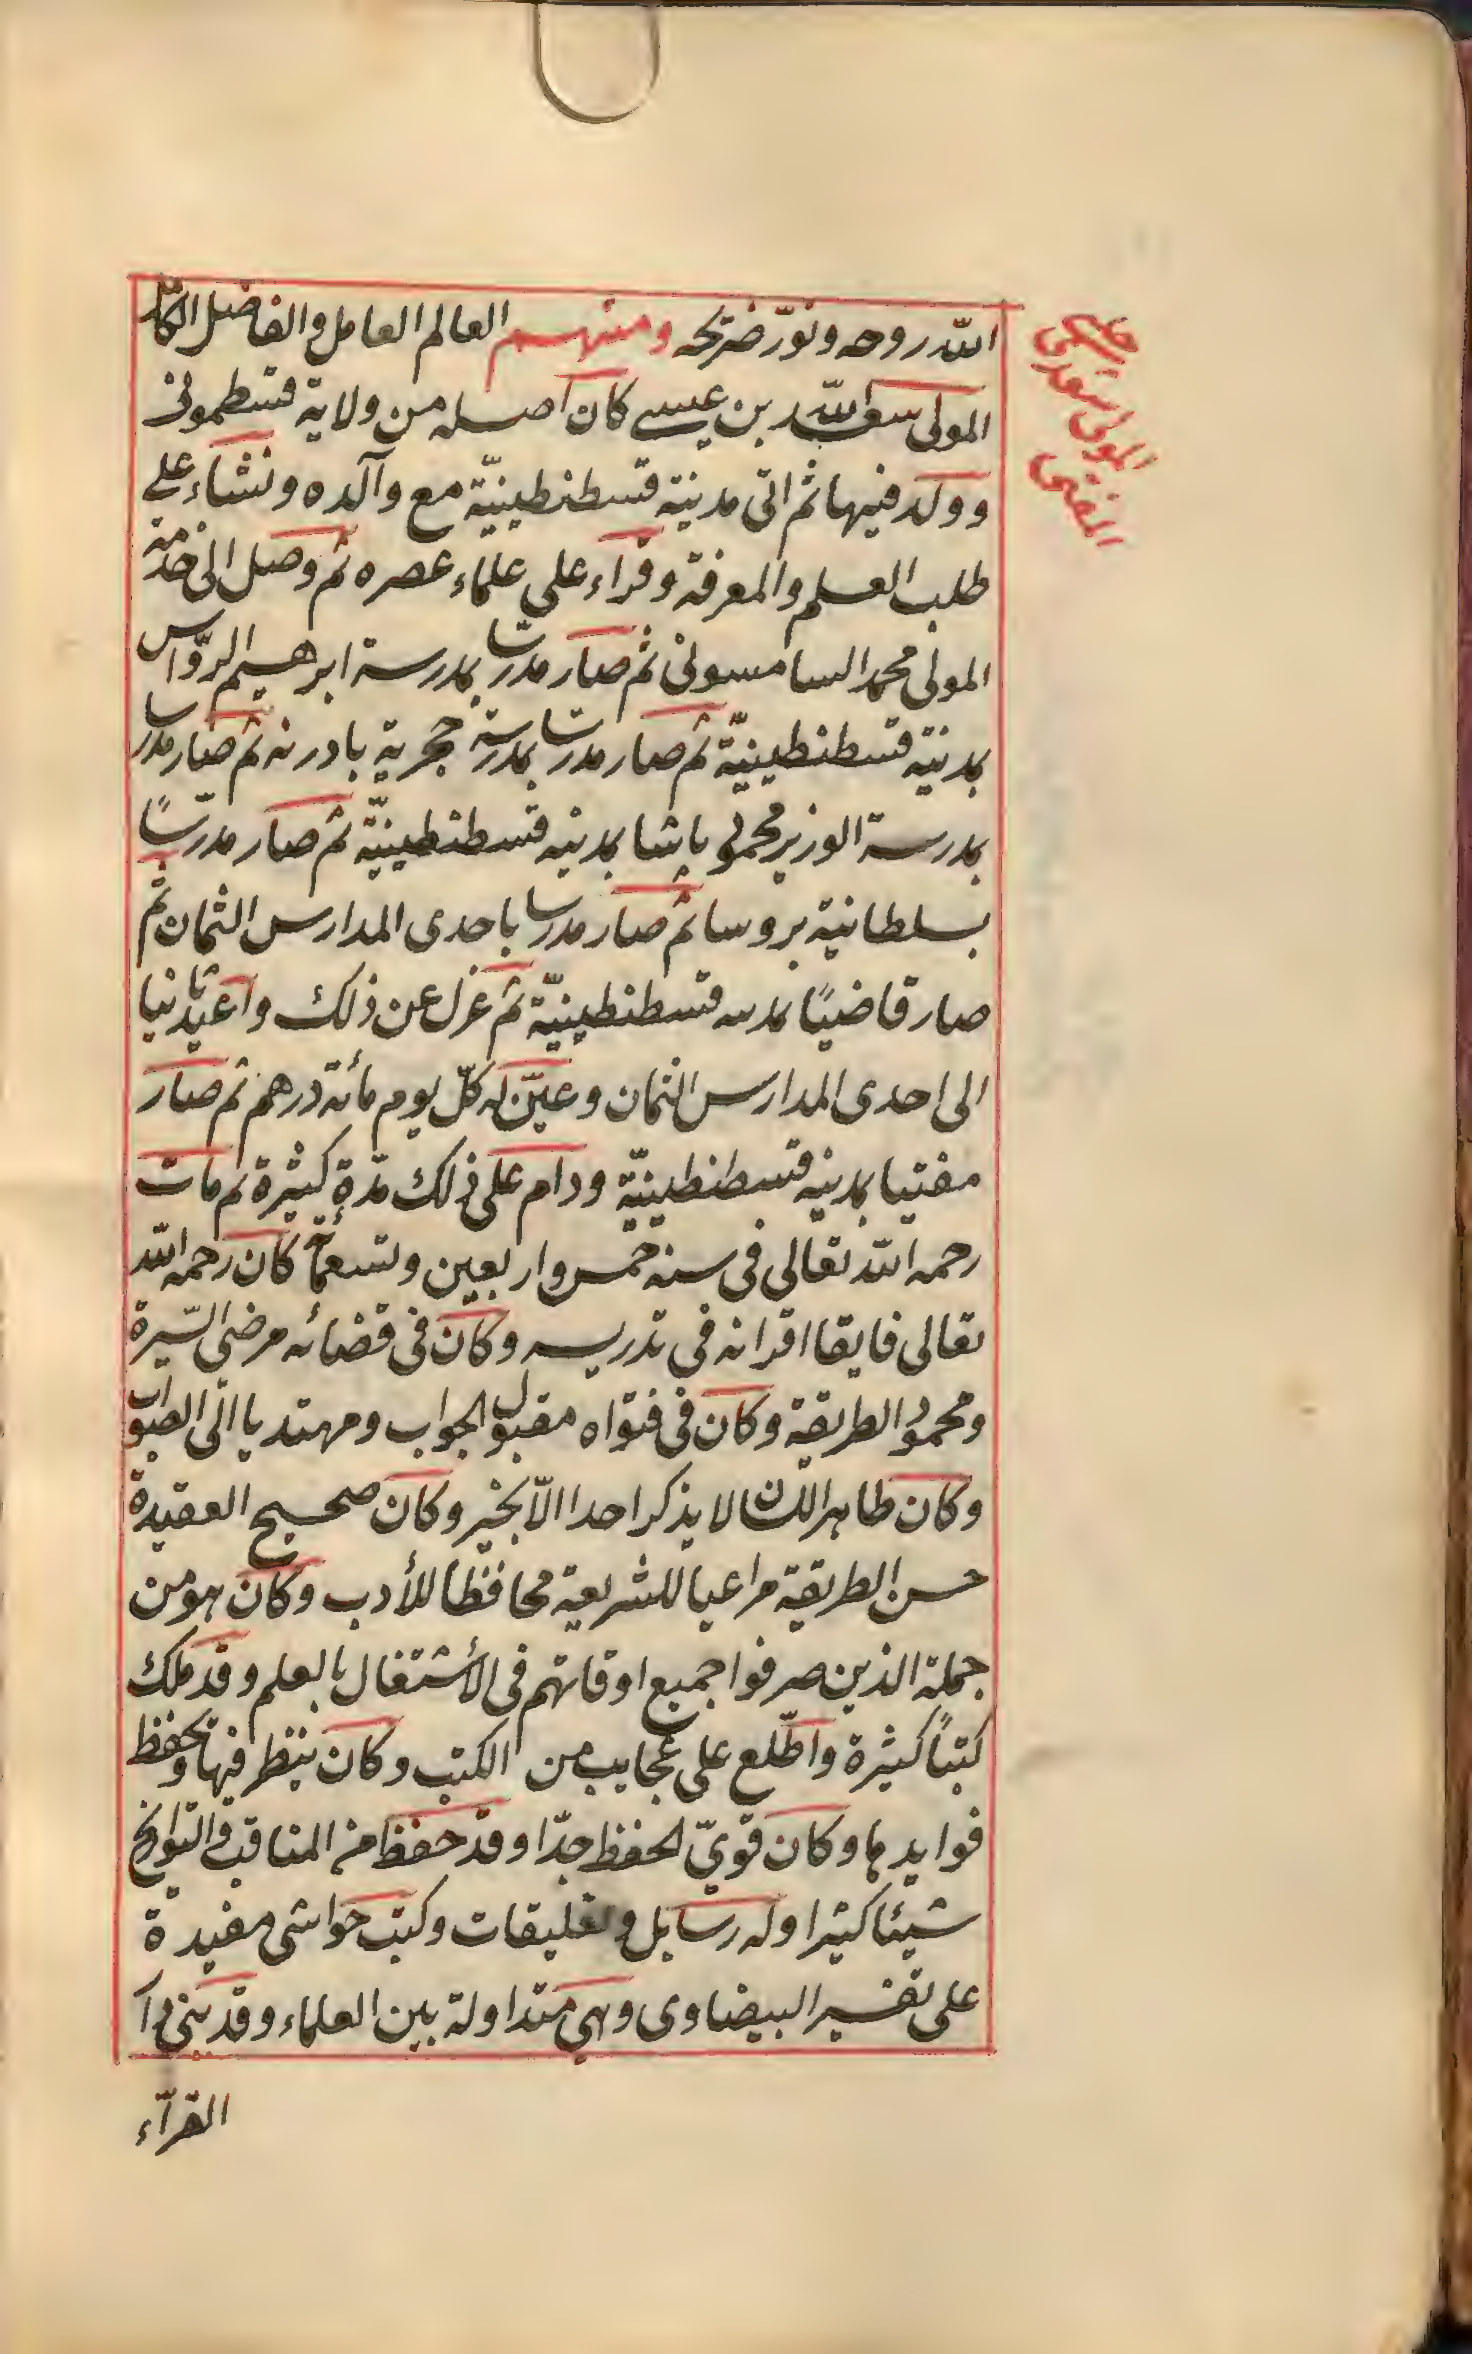 الله روحه ونوّر ضريحه ومنهم العالم العامل والفاضل الكامل
المولى سعد الله بن عيسى كان اصله من ولاية قسطمونى
وولد فيها ثم اتى مدينة قسطنطينيّة مع والده ونشاء على
طلب العلم والمعرفة وقراء على علماء عصره ثم وصل الى خدمة
المولى محمد السامسونى ثم صار مدرسا بمدرسة ابرهيم الروّاس
بمدينة قسطنطينيّة ثم صار مدرسا بمدرسة حجرية بادرنه ثم صار مدرسا
بمدرسة الوزير محمود پاشا بمدينه قسطنطينيّة ثم صار مدرّسًا
بسلطانية بروسا ثم صار مدرسا باحدى المدارس الثمان ثم
صار قاضيًا بمدينه قسطنطينيّة ثم عزل عن ذلك واعيد ثانيا
الى احدى المدارس الثمان وعيّن له كلّ يوم مأئة درهم ثم صار
مفتيا بمدينه قسطنطينيّة ودام على ذلك مدّة كثيرة ثم مات
رحمه الله تعالى فى سنة خمس واربعين وتسعمأئة كان رحمه الله
تعالى فايقا اقرانه فى تدريسه وكان فى قضائه مرضى السّيرة
ومحمود الطريقة وكان فى فتواه مقبول الجواب ومهتديا الى الصواب
وكان طاهر اللسان لا يذكر احدا الّا بخير وكان صحيح العقيدة
حسن الطريقة مراعيا للشريعة محافظا للأدب وكان هو من
جملة الذين صرفوا جميع اوقاتهم فى الأشتغال بالعلم وقد ملك
كتبًا كثيرة واطّلع على عجايب من الكتب وكان ينظر فيها ويحفظ
فوايدها وكان قوىّ الحفظ جدّا وقد حفظ من المناقب والتواريخ
شيئا كثيرا وله رسايل وتعليقات وكتب حواشى مفيدة
على تفسير البيضاوى وهى متداولة بين العلماء وقد بنى دار
القرآء
المولى سعدى چلبى
المفتى